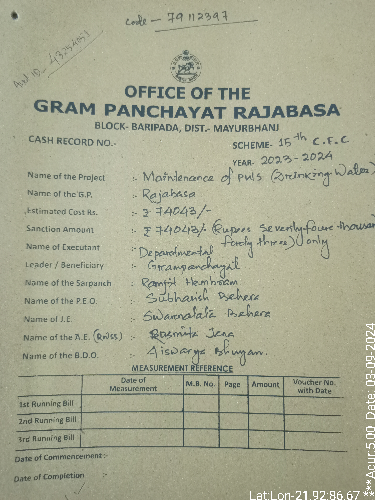 Code - 79112397
OFFICE OF THE
GRAM PANCHAYAT RAJABASA
BLOCK- BARIPADA, DIST.- MAYURBHANJ
CASH RECORD NO.-
SCHEME- 15th C.F.C
YEAR- 2023-2024
Name of the Project :- Maintenance of puls (Drinking Water)
Name of the G.P. :- Rajabasa
Estimated Cost Rs. :- ₹ 74043/-
Sanction Amount :- ₹ 74043/- (Rupees Seventy four thousand
forty three) only
Name of Executant :- Departmental
Leader / Beneficiary :- Grampanchayat
Name of the Sarpanch :- Ranjit Hembram
Name of the P.E.O. :- Subhasish Behera
Name of J.E. :- Swarnalata Behera
Name of the A.E. (RWSS) :- Rasmita Jena
Name of the B.D.O. :- Aiswarya Bhuyan.
MEASUREMENT REFERENCE
Date of Measurement M.B. No. Page Amount Voucher No. with Date
1st Running Bill
2nd Running Bill
3rd Running Bill
Date of Commencement :-
Date of Completion :-
Lat:Lon-21.92:86.67
***Acur:5.00 Date: 03-09-2024